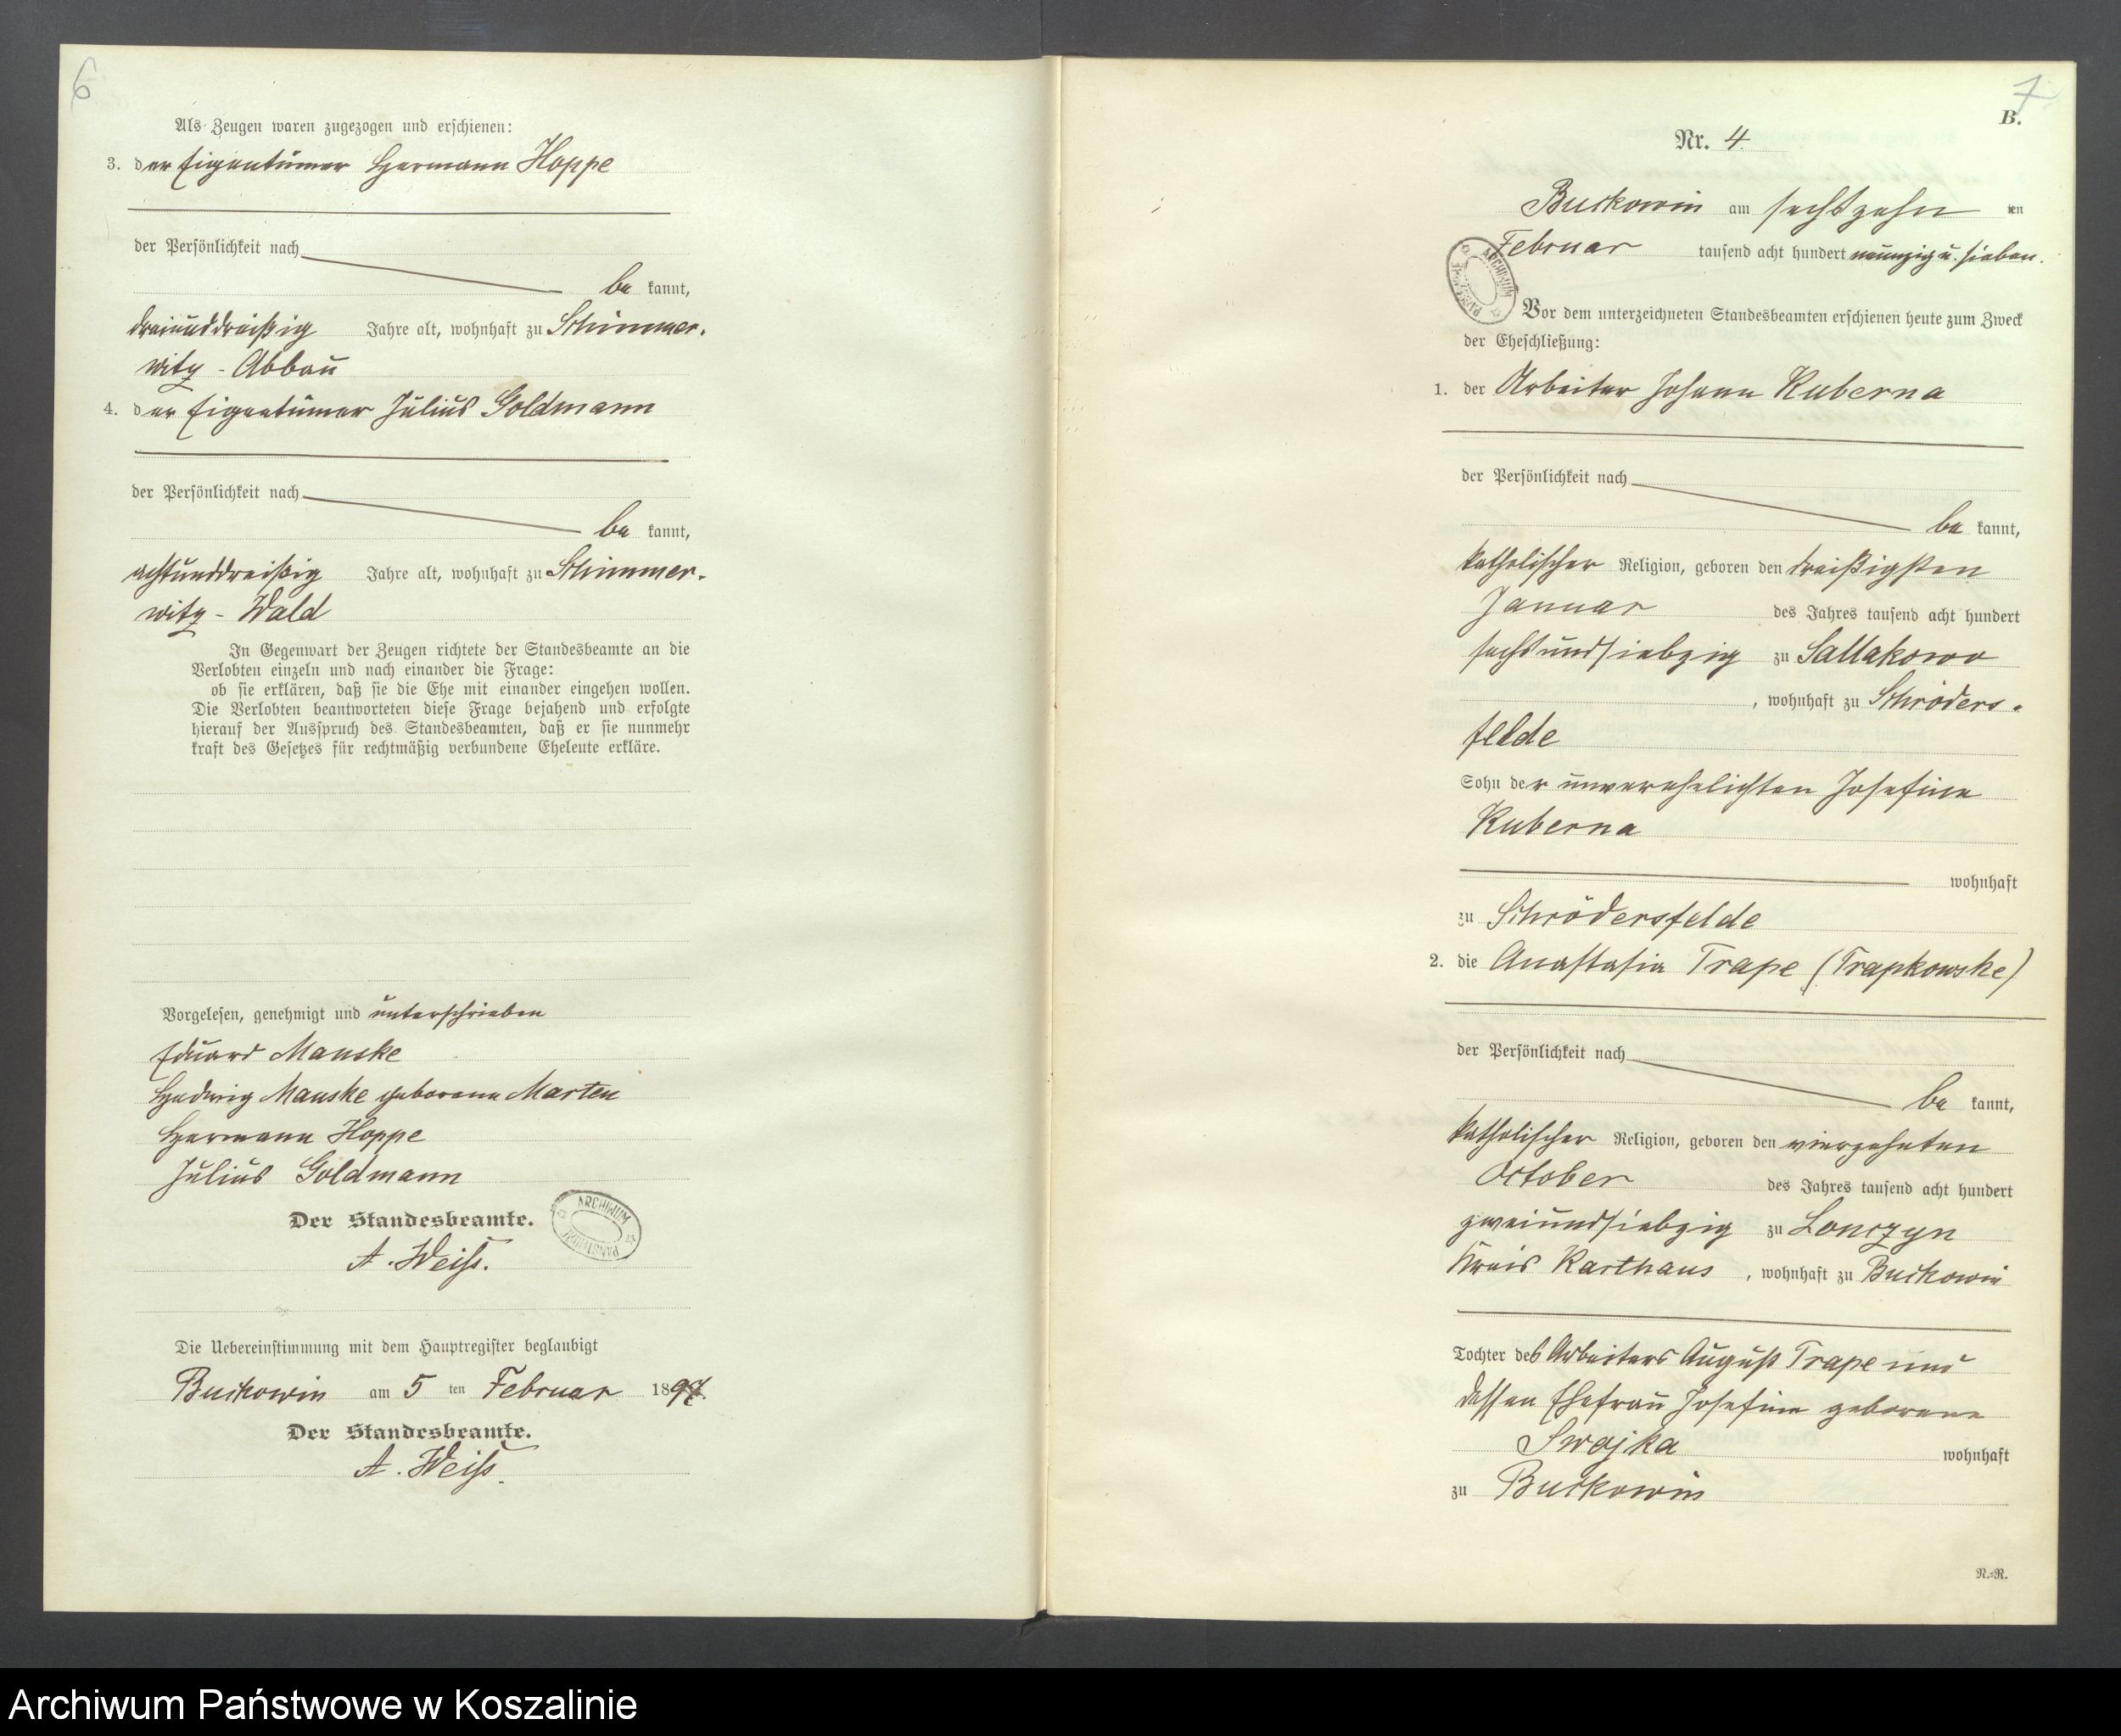 6
Als Zeugen waren zugezogen und erschienen:
3. der Eigentümer Hermann Hoppe
der Persönlichkeit nach
be kannt,
dreiunddreißig Jahre alt, wohnhaft zu Schimmer-
witz - Abbau
4. der Eigentümer Julius Goldmann
der Persönlichkeit nach
be kannt,
achtunddreißig Jahre alt, wohnhaft zu Schimmer-
witz - Wald
In Gegenwart der Zeugen richtete der Standesbeamte an die
Verlobten einzeln und nach einander die Frage:
ob sie erklären, daß sie die Ehe mit einander eingehen wollen.
Die Verlobten beantworteten diese Frage bejahend und erfolgte
hierauf der Ausspruch des Standesbeamten, daß er sie nunmehr
kraft des Gesetzes für rechtmäßig verbundene Eheleute erkläre.
Vorgelesen, genehmigt und unterschrieben
Eduard Manske
Hedwig Manske geborene Marten
Hermann Hoppe
Julius Goldmann
Der Standesbeamte.
ARCHIWUM PAŃSTWOWE
A. Weiß.
Die Uebereinstimmung mit dem Hauptregister beglaubigt
Buckowin am 5 ten Februar 1897.
Der Standesbeamte.
A. Weiß.
7
B.
Nr. 4.
Buckowin am sechszehn ten
Februar tausend acht hundert neunzig u. sieben.
ARCHIWUM PAŃSTWOWE
Vor dem unterzeichneten Standesbeamten erschienen heute zum Zweck
der Eheschließung:
1. der Arbeiter Johann Kuberna
der Persönlichkeit nach
be kannt,
katholischer Religion, geboren den dreißigsten
Januar des Jahres tausend acht hundert
sechsundsiebzig zu Sallakowo
, wohnhaft zu Schröders-
felde
Sohn der unverehelichten Josefine
Kuberna
wohnhaft
zu Schrödersfelde
2. die Anastasia Trape (Trapkowske)
der Persönlichkeit nach
be kannt,
katholischer Religion, geboren den vierzehnten
October des Jahres tausend acht hundert
zweiundsiebzig zu Lonczyn
Kreis Karthaus, wohnhaft zu Buckowin
Tochter des Arbeiters August Trape und
dessen Ehefrau Josefine geborene
Swojka wohnhaft
zu Buckowin
N.=R.
Archiwum Państwowe w Koszalinie